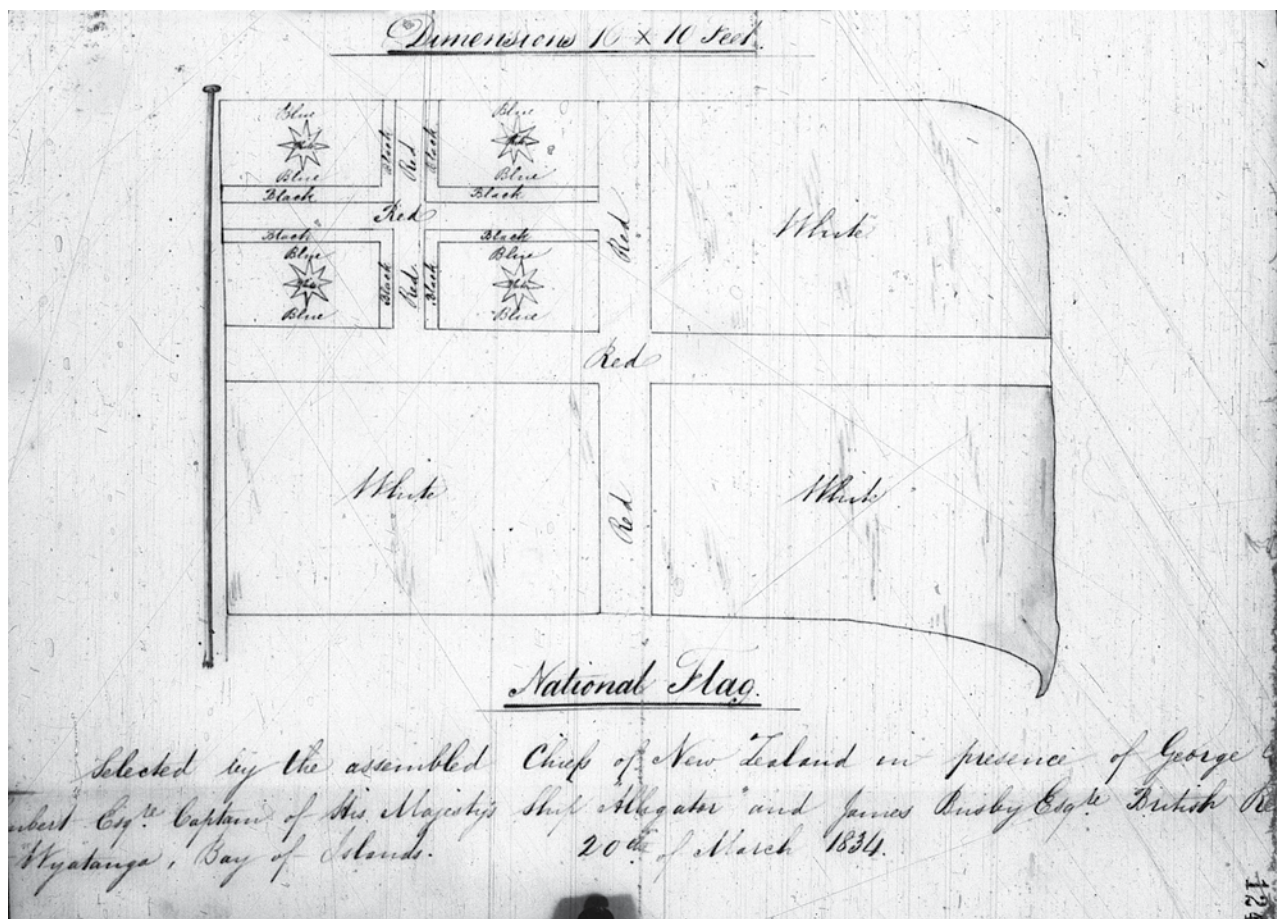 Dimensions 16 x 10 Feet.
Blue Blue
White White
Blue Blue
Black Red Black
Black Black
Red
Black Black
Blue Blue
White White
Blue Blue
Black Red Black
Red
White
Red
White
Red
White
National Flag.
Selected by the assembled Chiefs of New Zealand in presence of George
mbert Esqre Captain of His Majestys Ship "Alligator" and James Busby Esqre British Re
Wyatanga, Bay of Islands. 20th of March 1834.
124